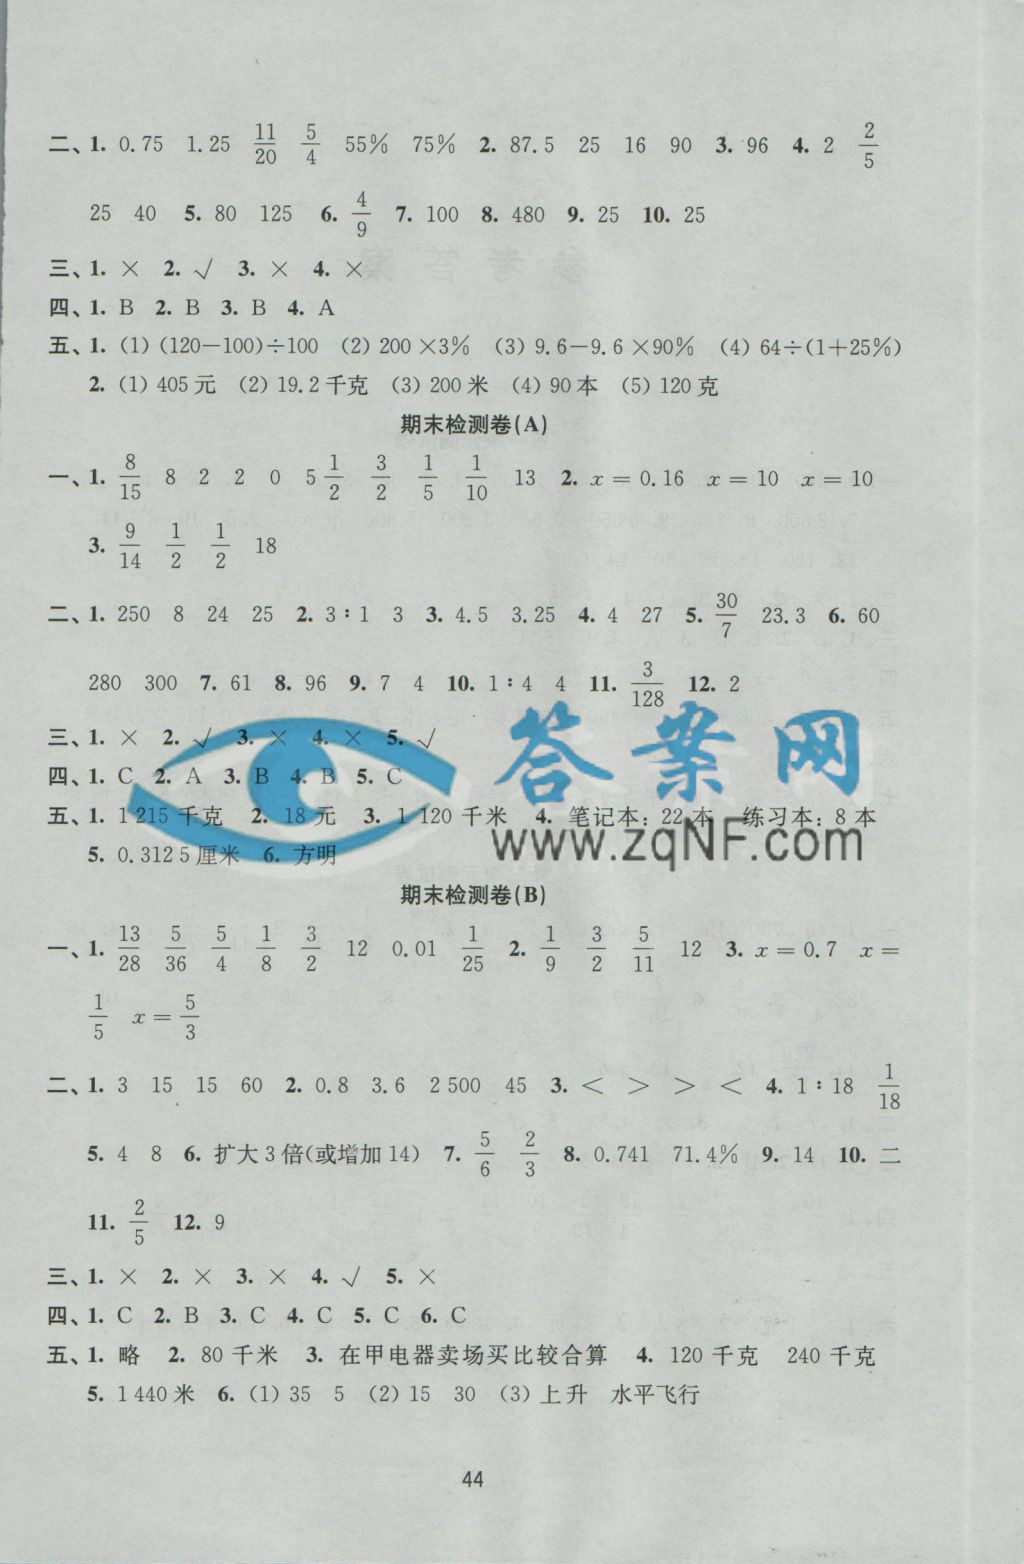 二、1. 0.75 1.25 11/20 5/4 55% 75% 2. 87.5 25 16 90 3. 96 4. 2 2/5
25 40 5. 80 125 6. 4/9 7. 100 8. 480 9. 25 10. 25
三、1. × 2. √ 3. × 4. ×
四、1. B 2. B 3. B 4. A
五、1. (1) (120-100)÷100 (2) 200×3% (3) 9.6-9.6×90% (4) 64÷(1+25%)
2. (1) 405元 (2) 19.2千克 (3) 200米 (4) 90本 (5) 120克
期末检测卷(A)
一、1. 8/15 8 2 2 0 5 1/2 3/2 1/5 1/10 13 2. x=0.16 x=10 x=10
3. 9/14 1/2 1/2 18
二、1. 250 8 24 25 2. 3∶1 3 3. 4.5 3.25 4. 4 27 5. 30/7 23.3 6. 60
280 300 7. 61 8. 96 9. 7 4 10. 1∶4 4 11. 3/128 12. 2
三、1. × 2. √ 3. × 4. × 5. √
四、1. C 2. A 3. B 4. B 5. C
五、1. 1 215千克 2. 18元 3. 1 120千米 4. 笔记本：22本 练习本：8本
5. 0.312 5厘米 6. 方明
答案网
www.zqNF.com
期末检测卷(B)
一、1. 13/28 5/36 5/4 1/8 3/2 12 0.01 1/25 2. 1/9 3/2 5/11 12 3. x=0.7 x=
1/5 x=5/3
二、1. 3 15 15 60 2. 0.8 3.6 2 500 45 3. < > > < 4. 1∶18 1/18
5. 4 8 6. 扩大3倍(或增加14) 7. 5/6 2/3 8. 0.741 71.4% 9. 14 10. 二
11. 2/5 12. 9
三、1. × 2. × 3. × 4. √ 5. ×
四、1. C 2. B 3. C 4. C 5. C 6. C
五、1. 略 2. 80千米 3. 在甲电器卖场买比较合算 4. 120千克 240千克
5. 1 440米 6. (1) 35 5 (2) 15 30 (3) 上升 水平飞行
44